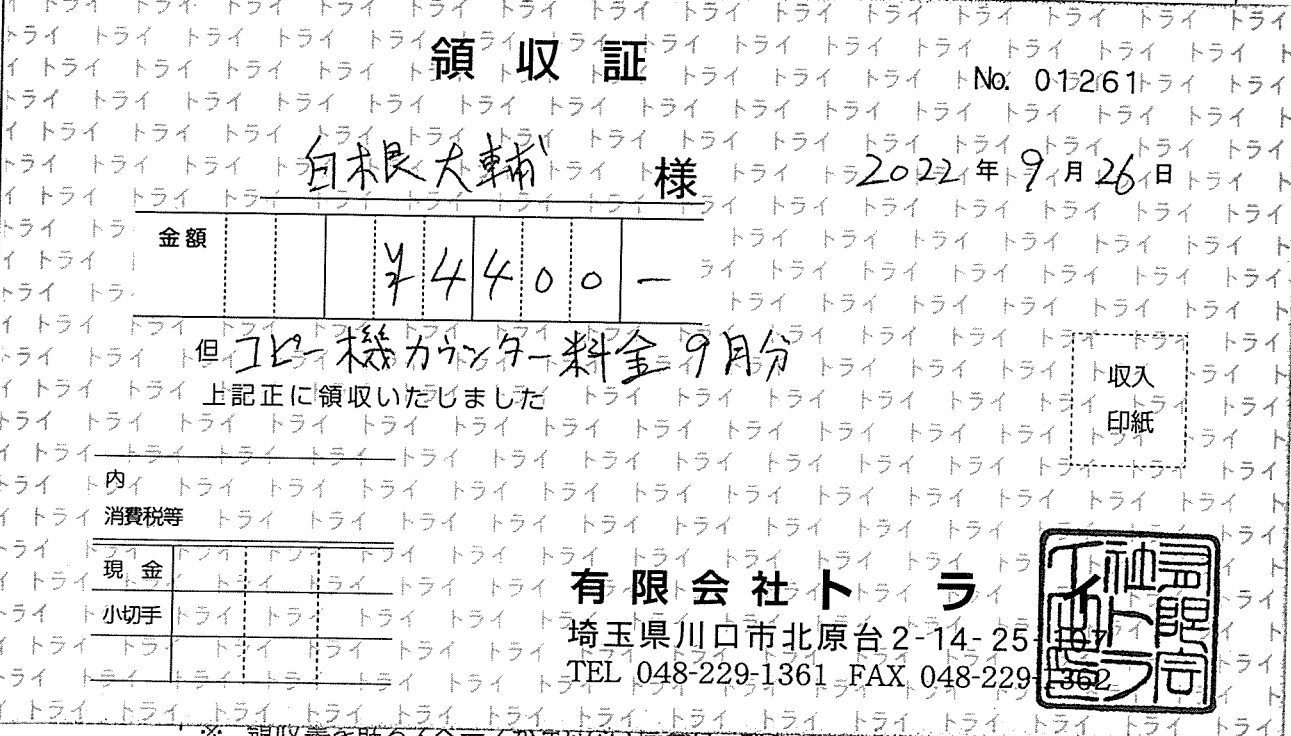 領収証
No. 01261
白根大輔 様
2022年9月26日
金額 ¥4400-
但 コピー機カウンター料金9月分
上記正に領収いたしました
収入
印紙
内
消費税等
現金
小切手
有限会社トライ
埼玉県川口市北原台2-14-25-107
TEL 048-229-1361 FAX 048-229-1362